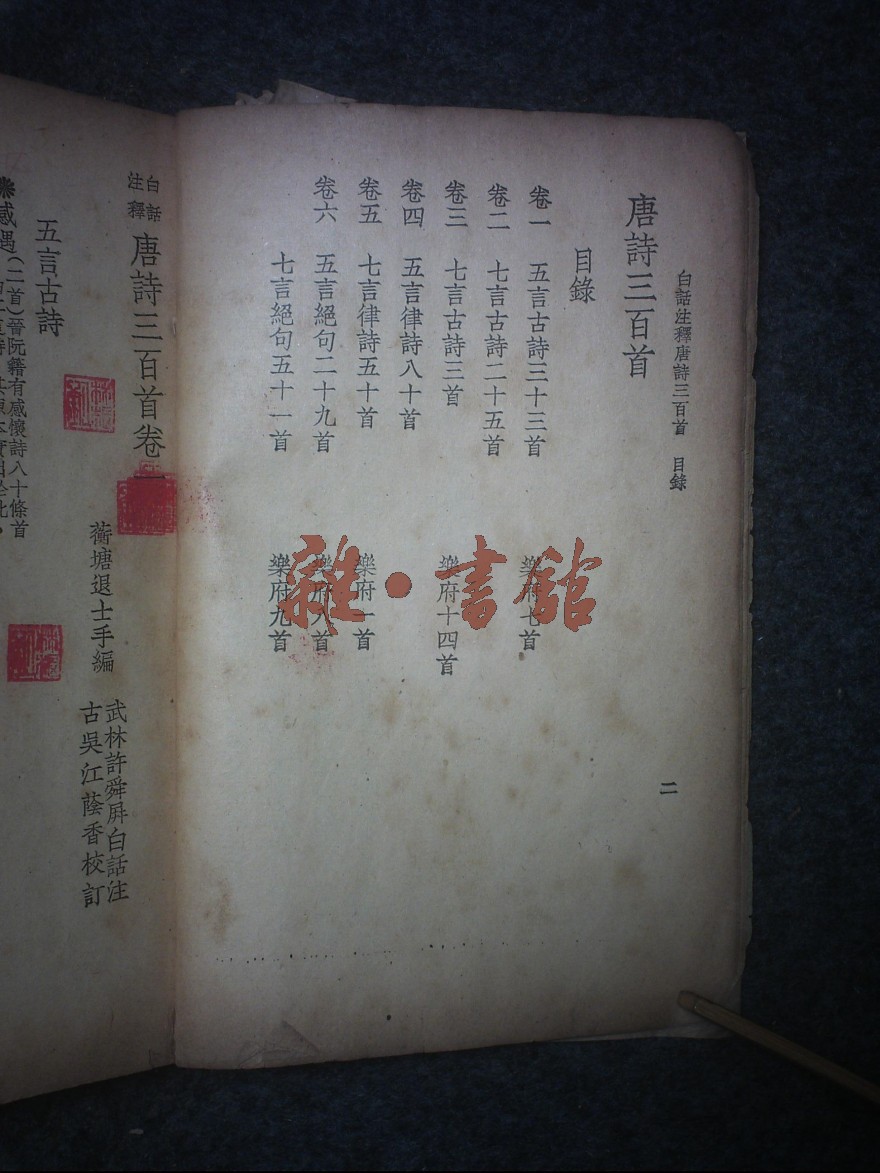 白話注釋唐詩三百首　目錄
二
唐詩三百首
目錄
卷一　五言古詩三十三首　樂府七首
卷二　七言古詩二十五首
卷三　七言古詩三首　樂府十四首
卷四　五言律詩八十首
卷五　七言律詩五十首　樂府一首
卷六　五言絕句二十九首　樂府八首
七言絕句五十一首　樂府九首
雜·書館
白話注釋　唐詩三百首卷一
蘅塘退士手編
武林許舜屏白話注
古吳江蔭香校訂
五言古詩
感遇（二首）晉阮籍有感懷詩八十條首